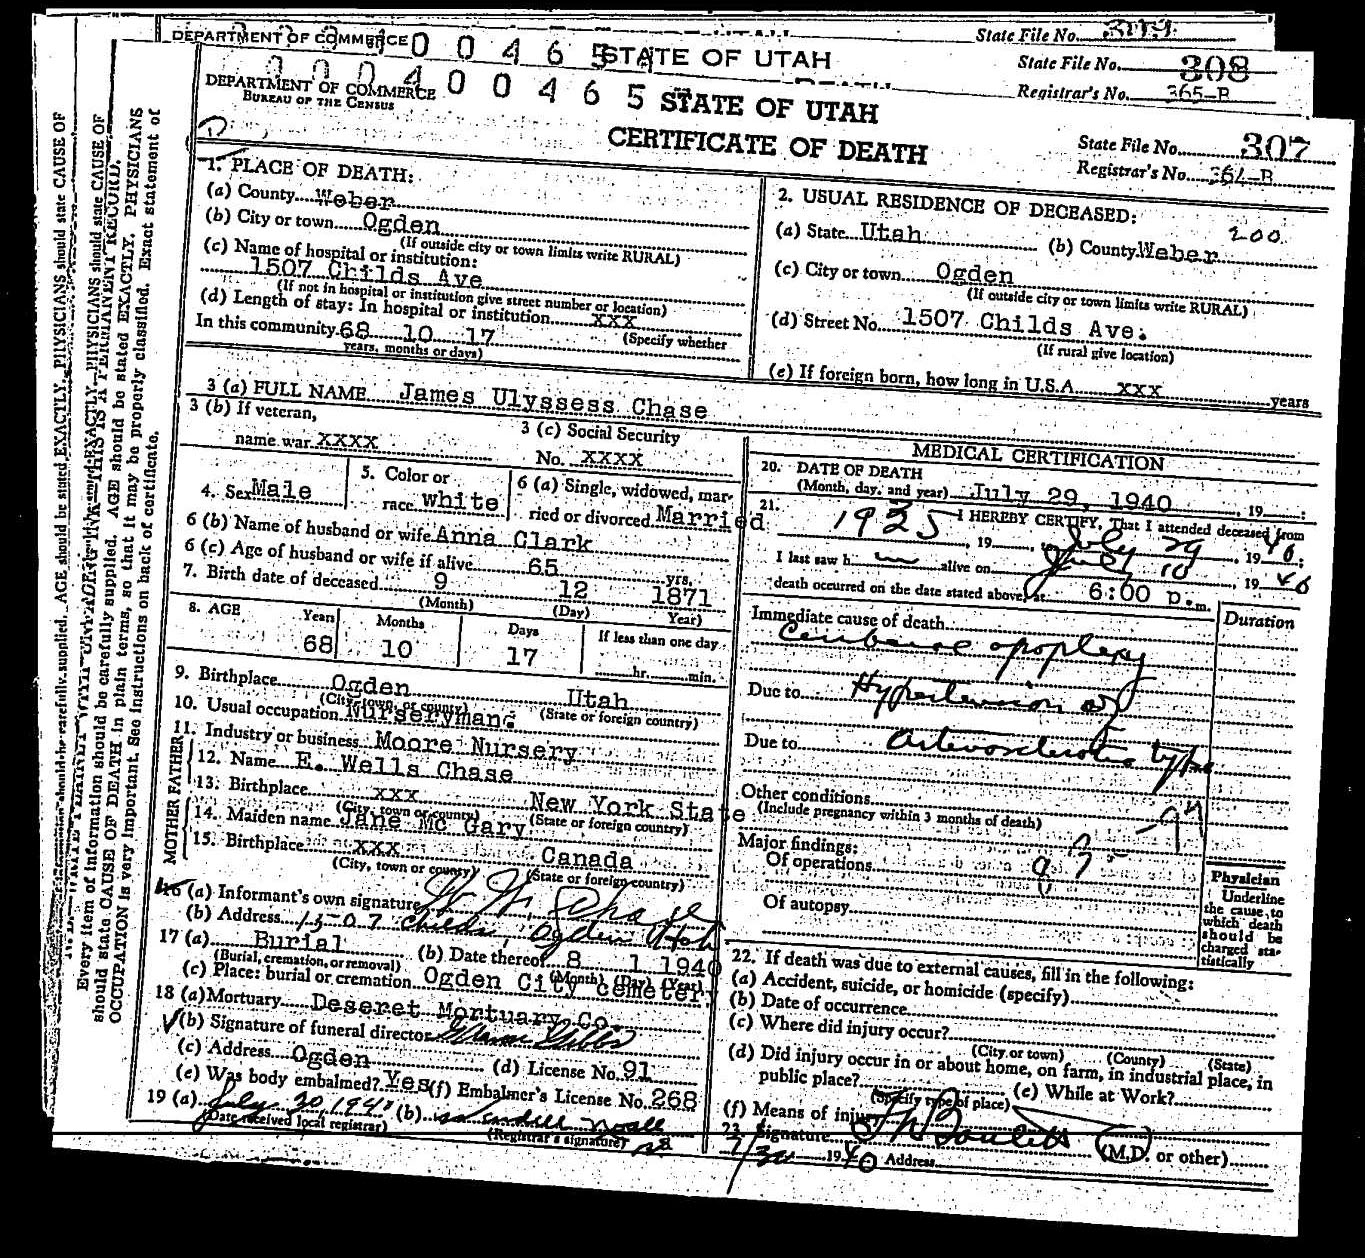 State File No. 309
DEPARTMENT OF COMMERCE 0 0 4 6 5 STATE OF UTAH
State File No. 308
Registrar's No. 365-B
DEPARTMENT OF COMMERCE 0 0 4 0 0 4 6 5 STATE OF UTAH
BUREAU OF THE CENSUS
CERTIFICATE OF DEATH
State File No. 307
Registrar's No. 364-B
1. PLACE OF DEATH:
(a) County Weber
(b) City or town Ogden
(If outside city or town limits write RURAL)
(c) Name of hospital or institution:
1507 Childs Ave
(If not in hospital or institution give street number or location)
(d) Length of stay: In hospital or institution xxx
In this community 68 10 17 (Specify whether
years, months or days)
2. USUAL RESIDENCE OF DECEASED:
200
(a) State Utah (b) County Weber
(c) City or town Ogden
(If outside city or town limits write RURAL)
(d) Street No. 1507 Childs Ave.
(If rural give location)
(e) If foreign born, how long in U.S.A. xxx years
3 (a) FULL NAME James Ulyssess Chase
3 (b) If veteran,
name war XXXX
3 (c) Social Security
No. XXXX
4. Sex Male
5. Color or
race White
6 (a) Single, widowed, mar-
ried or divorced Married
6 (b) Name of husband or wife Anna Clark
6 (c) Age of husband or wife if alive 65 yrs.
7. Birth date of deceased 9 12 1871
(Month) (Day) Year)
8. AGE Years Months Days If less than one day
68 10 17 hr. min.
9. Birthplace Ogden Utah
(City, town, or county) (State or foreign country)
10. Usual occupation Nurseryman
11. Industry or business Moore Nursery
FATHER
12. Name E. Wells Chase
13. Birthplace xxx New York State
(City, town or county) (State or foreign country)
MOTHER
14. Maiden name Jane Mc Gary
15. Birthplace xxx Canada
(City, town or county) (State or foreign country)
16 (a) Informant's own signature Chase
(b) Address 1507 Childs, Ogden Utah
17 (a) Burial (b) Date thereof 8 1 1940
(Burial, cremation, or removal) (Month) (Day) (Year)
(c) Place: burial or cremation Ogden City Cemetery
18 (a) Mortuary Deseret Mortuary Co.
(b) Signature of funeral director
(c) Address Ogden (d) License No. 91
(e) Was body embalmed? Yes (f) Embalmer's License No. 268
19 (a) July 30 1940 (b)
(Date received local registrar) (Registrar's signature)
MEDICAL CERTIFICATION
20. DATE OF DEATH
(Month, day, and year) July 29, 1940, 19
21. I HEREBY CERTIFY, That I attended deceased from
1935, 19, to July 29, 1940;
I last saw h im alive on July 10, 1940
death occurred on the date stated above, at 6:00 p.m.
Immediate cause of death Duration
Cerebral apoplexy
Due to Hypertension of
Due to arteriosclerotic type
Other conditions
(Include pregnancy within 3 months of death)
Major findings:
Of operations
Of autopsy
Physician
Underline
the cause to
which death
should be
charged sta-
tistically
22. If death was due to external causes, fill in the following:
(a) Accident, suicide, or homicide (specify)
(b) Date of occurrence
(c) Where did injury occur?
(City or town) (County) (State)
(d) Did injury occur in or about home, on farm, in industrial place, in
public place? (Specify type of place) (e) While at Work?
(f) Means of injury
23. Signature (M.D. or other)
7/30 1940 Address
Every item of information should be carefully supplied. AGE should be stated EXACTLY. PHYSICIANS
should state CAUSE OF DEATH in plain terms, so that it may be properly classified. Exact statement of
OCCUPATION is very important. See instructions on back of certificate.